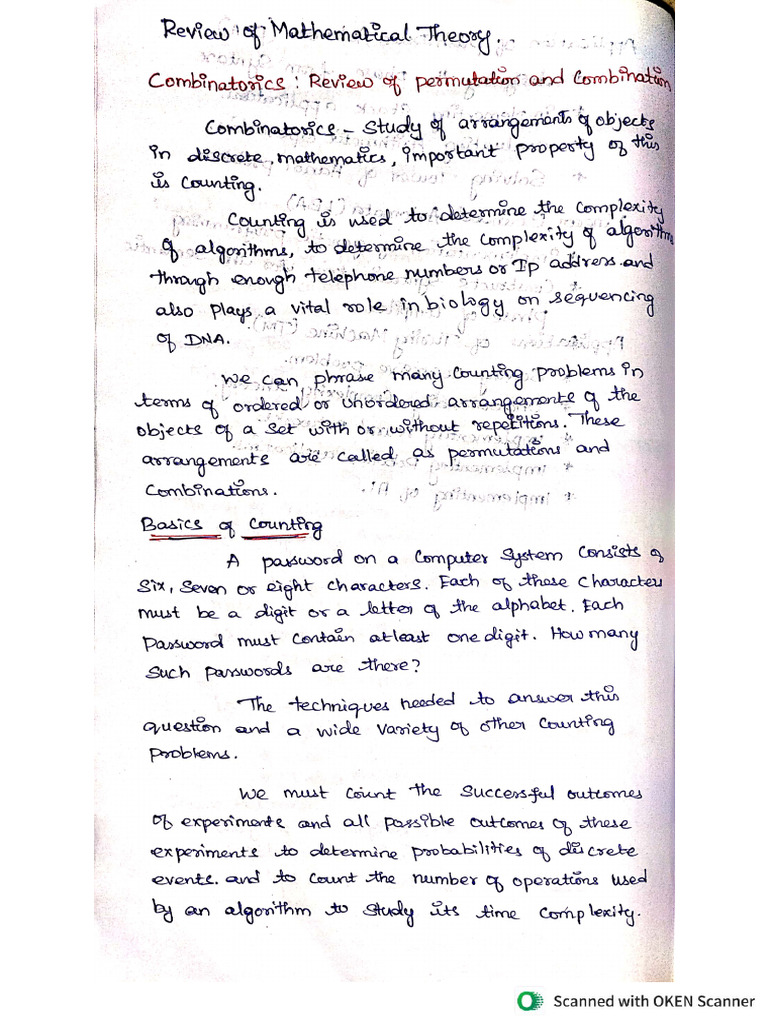 Review of Mathematical Theory.
Combinatorics : Review of permutation and Combination
Combinatorics – Study of arrangements of objects
in discrete mathematics, important property of this
is Counting.
Counting is used to determine the Complexity
of algorithms, to determine the Complexity of algorithms
through enough telephone numbers or Ip address and
also plays a vital role in biology on sequencing
of DNA.
We can phrase many Counting problems in
terms of ordered or unordered arrangements of the
objects of a set with or without repetitions. These
arrangements are called as permutations and
Combinations.
Basics of Counting
A password on a Computer System Consists of
Six, Seven or eight characters. Each of these Characters
must be a digit or a letter of the alphabet. Each
Password must Contain atleast one digit. How many
Such passwords are there?
The techniques needed to answer this
question and a wide variety of other Counting
Problems.
We must Count the Successful outcomes
of experiments and all possible outcomes of these
experiments to determine probabilities of discrete
events. and to Count the number of operations used
by an algorithm to study its time Complexity.
Scanned with OKEN Scanner